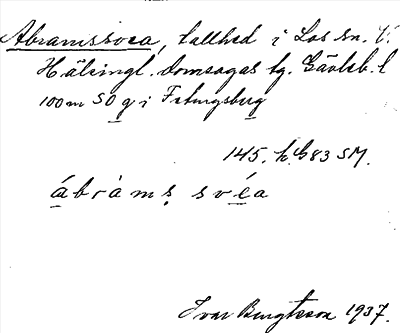 Abramssvea, tallhed i Los sn. V.
Hälsingl. domsagas tg. Gävleb. l
100 m SO g i Fetingsberg
145. h. G83 SM.
ábràms svéa
Ivar Bengtsson 1937.